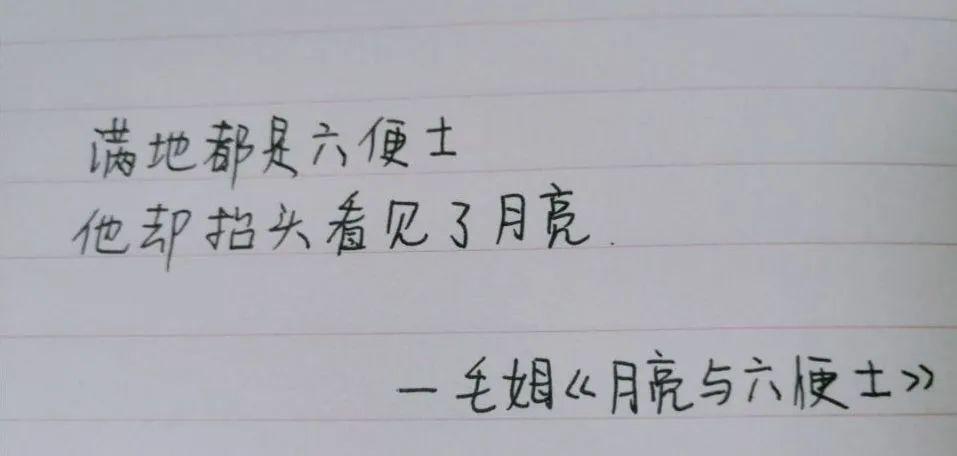 满地都是六便士
他却抬头看见了月亮.
—毛姆《月亮与六便士》